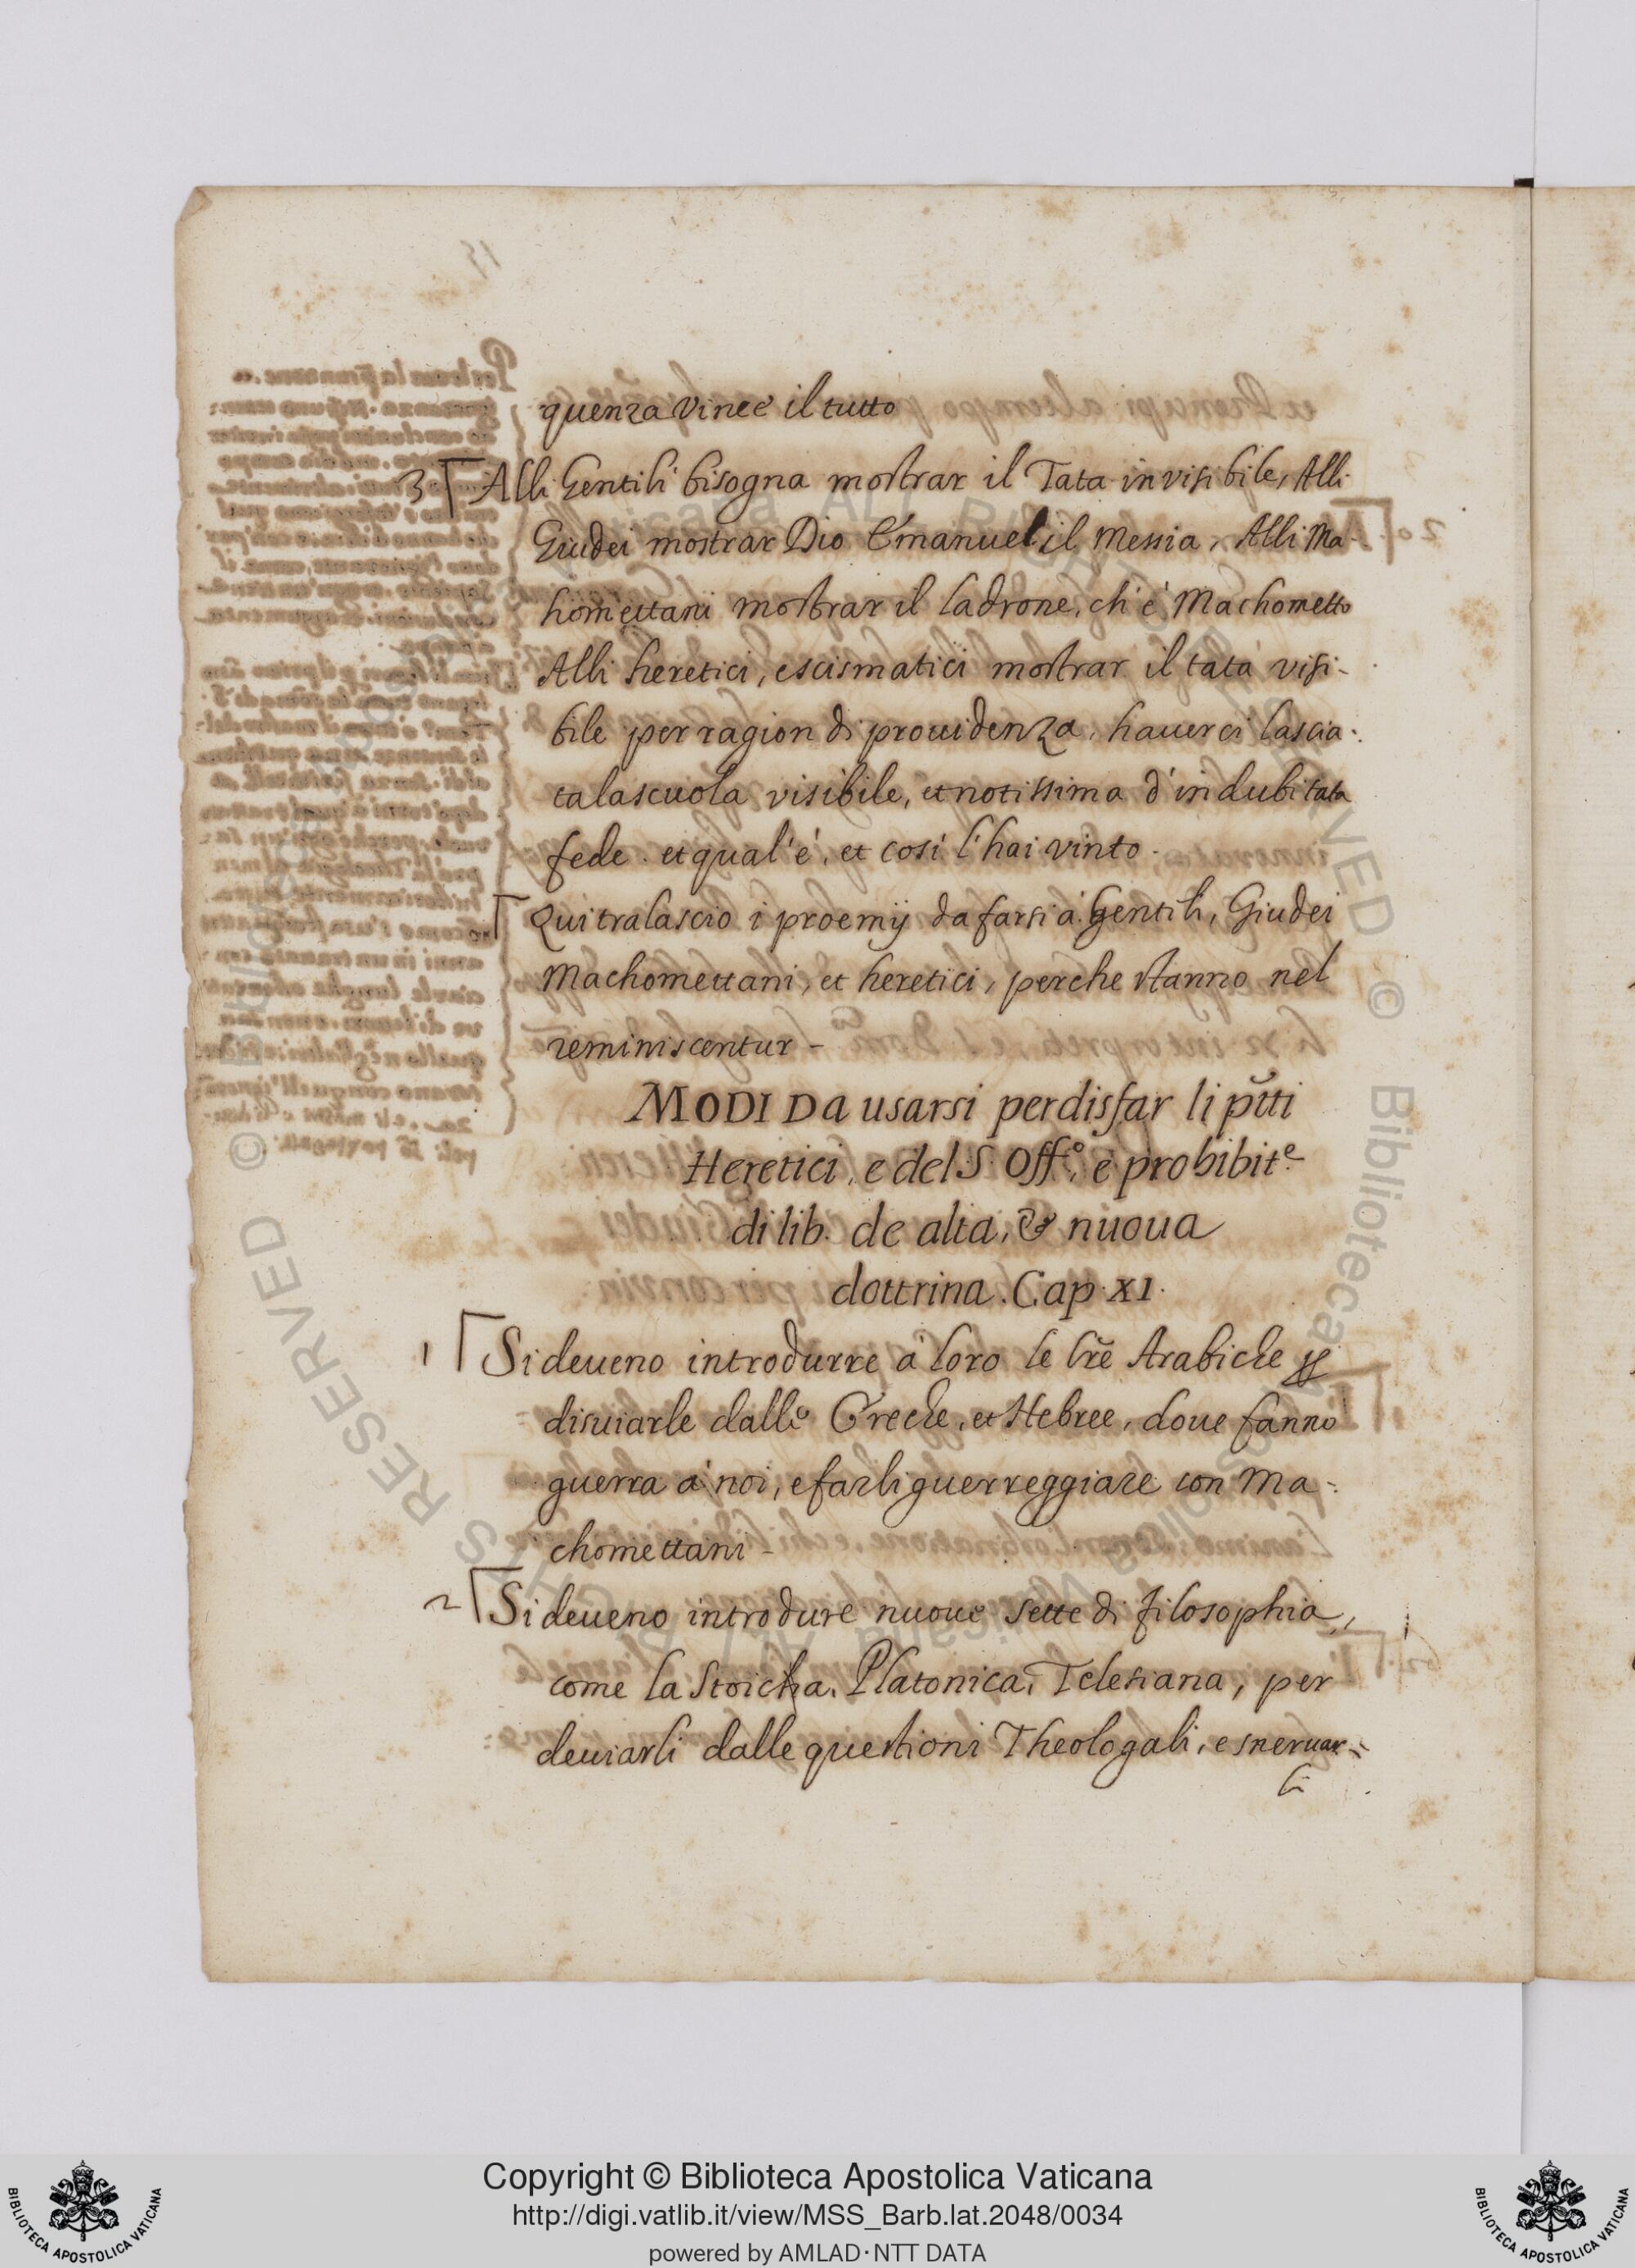 quenza vince il tutto
3 Alli Gentili bisogna mostrar il Tata invisibile, Alli
Giudei mostrar Dio Emanuel il Messia, Alli Ma-
homettani mostrar il ladrone, ch'è Machometto
Alli heretici, e scismatici mostrar il tata visi-
bile per ragion di prouidenza, hauerci lascia-
ta la scuola visibile, et notissima d'indubitata
fede. et qual'è, et cosi l'hai vinto.
Qui tralascio i proemij da farsi à Gentili, Giudei
Machomettani, et heretici, perche stanno nel
reminiscentur -
MODI Da usarsi per disfar li p̃tti
Heretici, e del S. Off.º, e prohibit.e
di lib. de alta, & nuoua
dottrina. Cap. XI.
1 Si deueno introdurre à loro le l̃re Arabiche
disuiarle dalle Greche, et Hebree, doue fanno
guerra à noi, e farli guerreggiare con Ma-
chomettani -
2 Si deueno introdure nuoue sette di filosophia,
come la Stoicha, Platonica, Telesiana, per
deuiarli dalle questioni Theologali, e sneruar-
li
Copyright © Biblioteca Apostolica Vaticana
http://digi.vatlib.it/view/MSS_Barb.lat.2048/0034
powered by AMLAD·NTT DATA
BIBLIOTECA APOSTOLICA VATICANA
BIBLIOTECA APOSTOLICA VATICANA